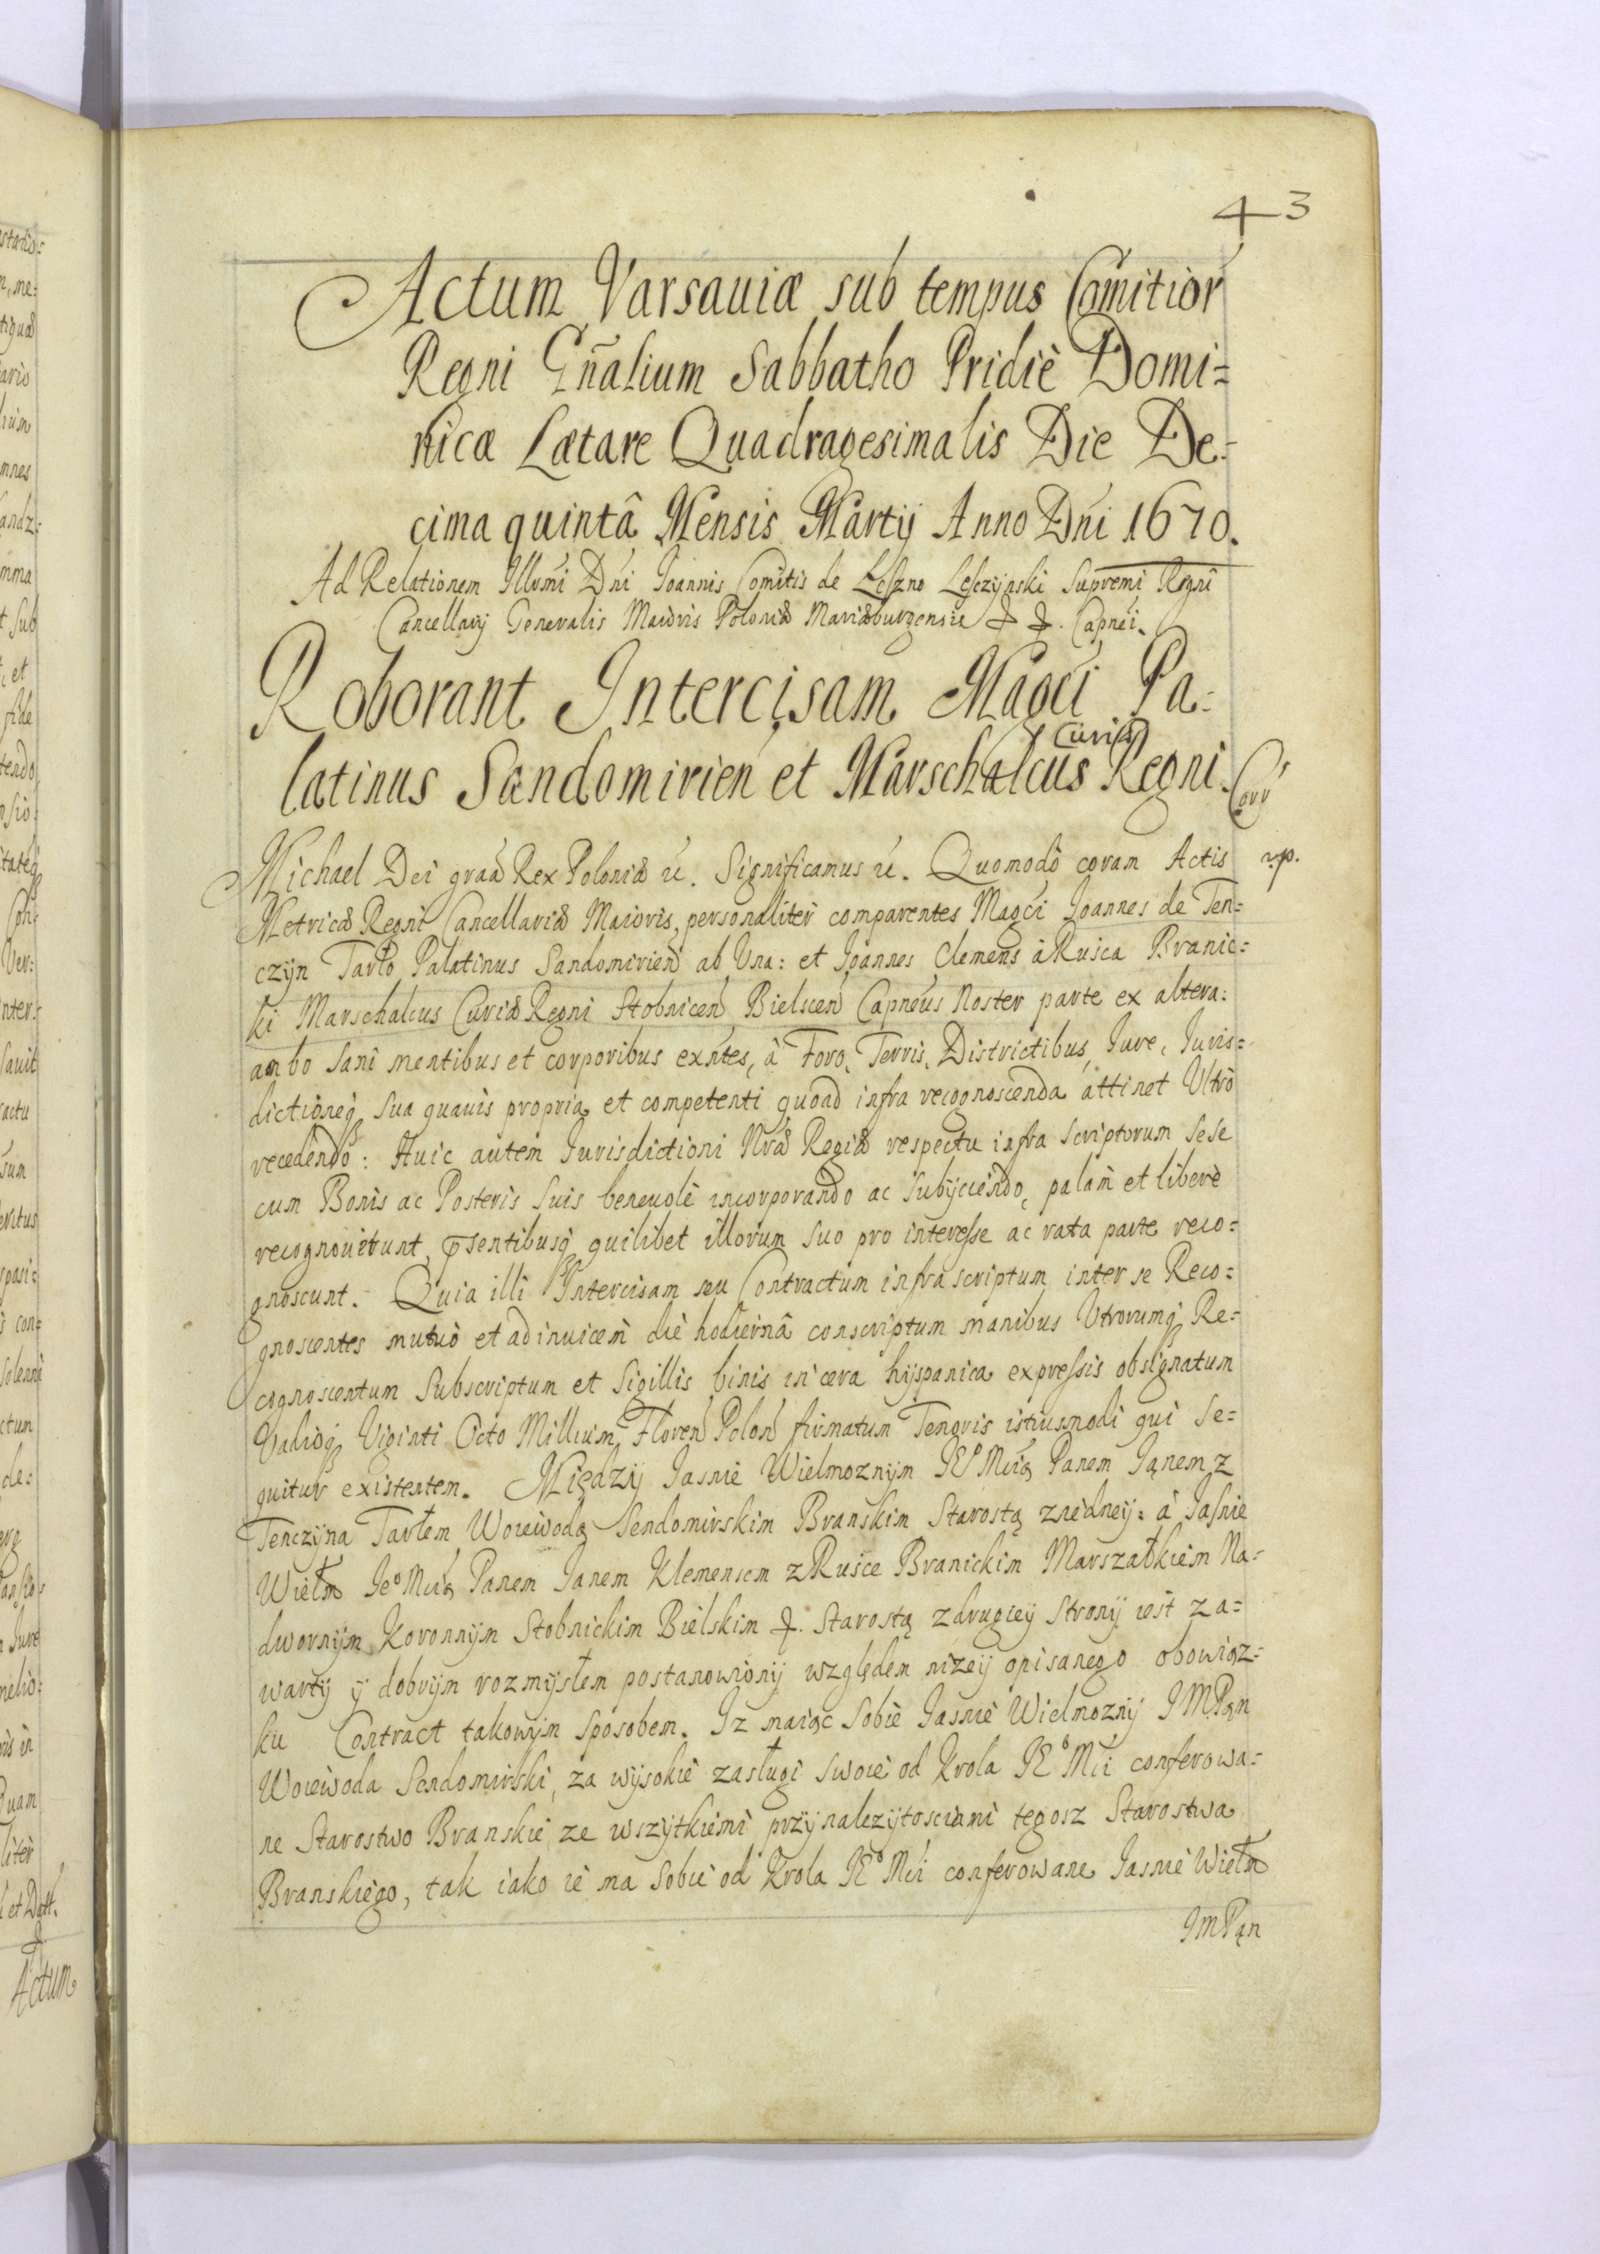 43
Actum Varsauiæ sub tempus Comitior
Regni Gñalium Sabbatho Pridiè Domi=
nicæ Lætare Quadragesimalis Die De=
cima quintâ Mensis Martij Anno Dni 1670.
Ad Relationem Illmi Dni Joannis Comitis de Leszno Lesczynski Supremi Regni
Cancellarij Generalis Maioris Poloniæ Mariæburgensis Capnei.
Roborant Intercisam Magci Pa=
Curiæ
latinus Sandomirien et Marschalcus Regni.
Corr
Michael Dei graa Rex Poloniæ &. Significamus &. Quomodò coram Actis
Metricæ Regni Cancellariæ Maioris, personaliter comparentes Magci Joannes de Ten=
czyn Tarło Palatinus Sandomirien ab Una: et Joannes Clemens à Rusca Branic=
ki Marschalcus Curiæ Regni Stobnicen Bielscen Capneus Noster parte ex altera:
ambo sani mentibus et corporibus exntes, à Foro, Terris, Districtibus, Jure, Juris=
dictioneq sua quauis propria et competenti quoad infra recognoscenda attinet Ultrò
recedendo: Huic autem Jurisdictioni Nræ Regiæ respectu infra scriptorum sese
cum Bonis ac Posteris suis beneuolè incorporando ac subijciendo, palàm et liberè
recognouerunt, psentibusq quilibet illorum suo pro interesse ac rata parte reco=
gnoscunt. Quia illi Intercisam seu Contractum infra scriptum inter se Reco=
gnoscentes mutuò et adinuicem die hodiernâ conscriptum manibus Utrorumq Re=
cognoscentum subscriptum et Sigillis binis in cera hyspanica expressis obsignatum
Vadioq Viginti Octo Millium Floren Polon firmatum Tenoris istiusmodi qui se=
quitur existentem. Między Jasnie Wielmoznym JE Mcią Panem Janem z
Tenczyna Tarłem Woiewodą Sendomirskim Branskim Starostą ziedney: à Jasnie
Wielm Je° Mcią Panem Janem Klemensem z Rusce Branickim Marszałkiem Na=
dwornym Koronnym Stobnickim Bielskim Starostą z drugiey strony iest za=
warty y dobrym rozmysłem postanowiony względem nizey opisanego obowiąz=
ku Contract takowym sposobem. Iz maiąc sobie Jasnie Wielmozny JMPan
Woiewoda Sendomirski, za wysokie zasługi swoie od Krola JE° Mci conferowa=
ne Starostwo Branskie, ze wszytkiemi przynalezytosciami tegosz Starostwa
Branskiego, tak iako ie ma sobie od Krola JE° Mci conferowane Jasnie Wielm
JmPan